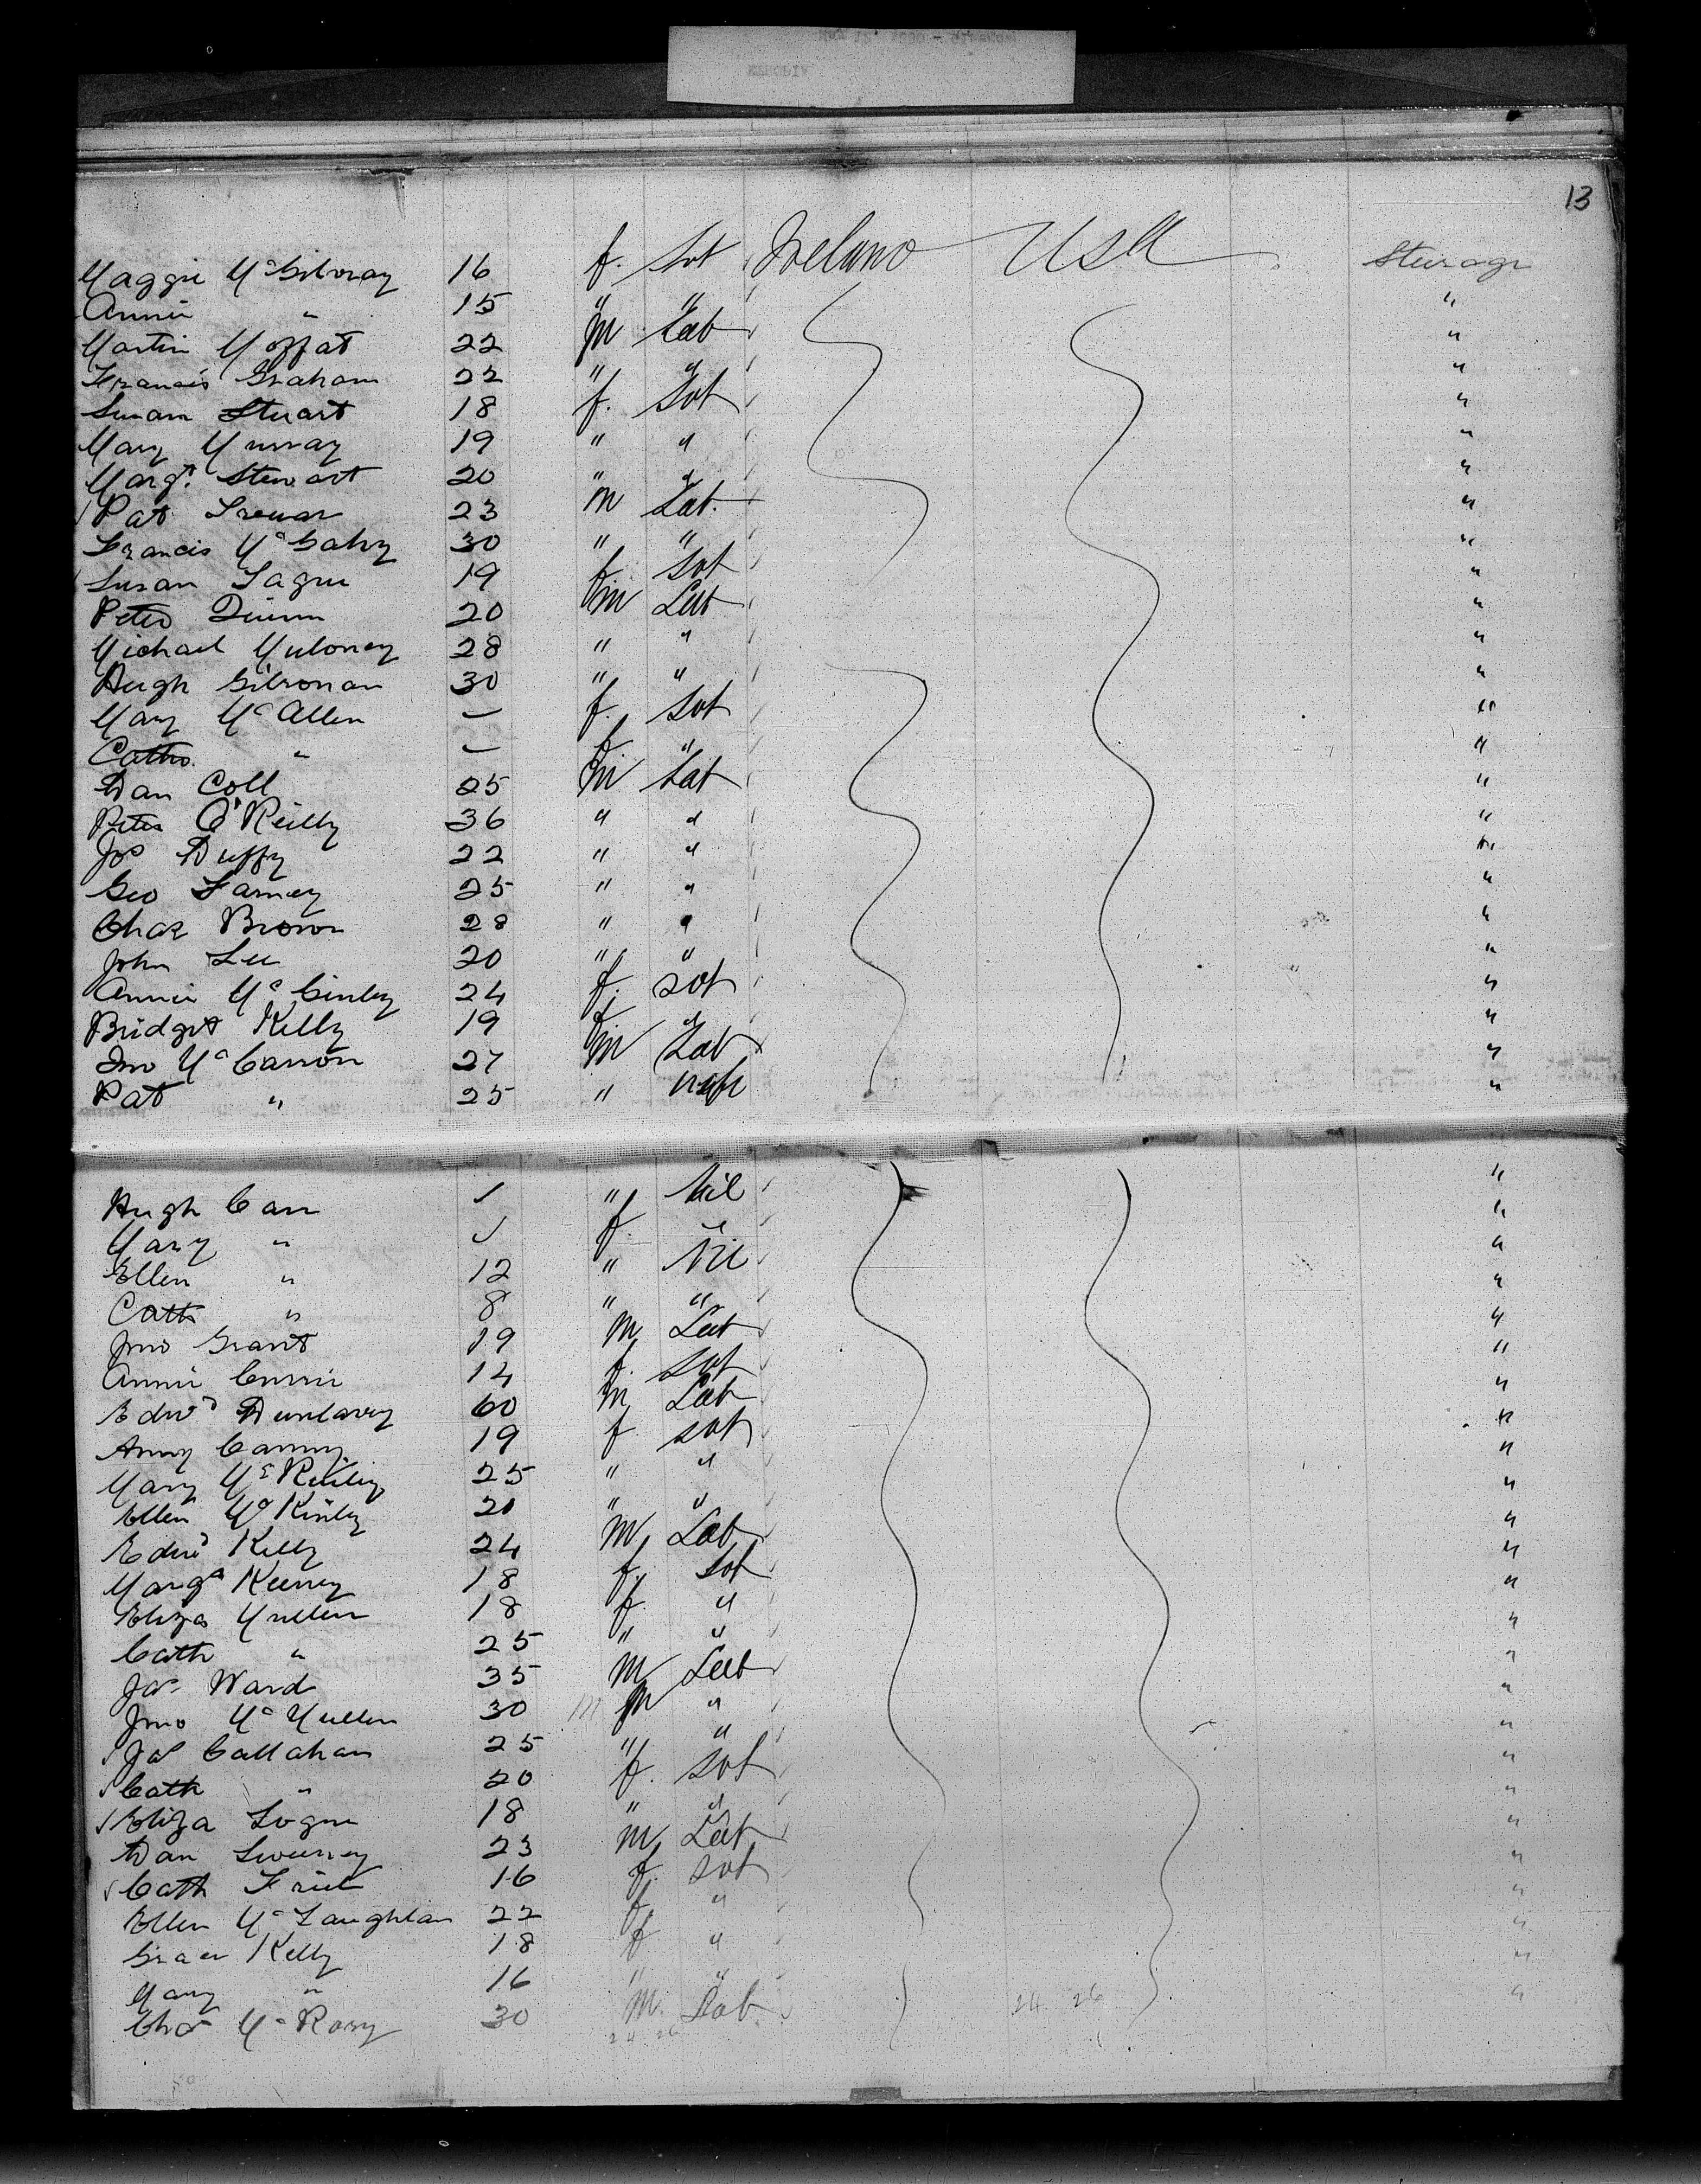 13
Maggie McGilvray 16 f. Svt Ireland USA Steerage
Annie " 15 " " "
Martin Moffat 22 m Lab "
Francis Graham 22 " " "
Susan Stuart 18 f. Svt "
Mary Murray 19 " " "
Margt. Stewart 20 " " "
Pat 23 m Lab. "
Francis McGahy 30 " " "
Susan 19 f Svt "
Peter Quinn 20 m Lab "
Michael Muloney 28 " " "
Hugh Gilronan 30 " " "
Mary McAllen — f. Svt "
Cath. " — f " "
Dan Coll 25 m Lab "
Peter O'Reilly 36 " " "
Jas Duffy 22 " " "
Geo Farney 25 " " "
Chas Brown 28 " " "
John Lee 20 " " "
Annie McGinley 24 f. Svt "
Bridget Kelly 19 f " "
Jno McCarron 27 m Lab "
Pat " 25 " "
Hugh Carr " Nil "
Mary " f " "
Ellen " 12 " Nil "
Cath " 8 " " "
Jno Grant 19 m Lab "
Annie 14 f. Svt "
Edwd Dunlavey 60 m Lab "
Anny Canny 19 f Svt "
Mary 25 " " "
Ellen McKinley 20 " " "
Edwd Kelly 24 m Lab "
Margt Keeney 18 f. Svt "
Eliza Mullen 18 f. " "
Cath " 25 " " "
Jas Ward 35 m Lab "
Jno McMullen 30 m m " "
Jas Callahan 25 " " "
Cath " 20 f. Svt "
Eliza Logue 18 " " "
Dan Sweeney 23 m Lab "
Cath Friel 16 f. Svt "
Ellen McLaughlan 22 f " "
Grace Kelly 18 f " "
Mary " 16 " " "
Chas McRory 30 m. Lab "
24 26 24 26